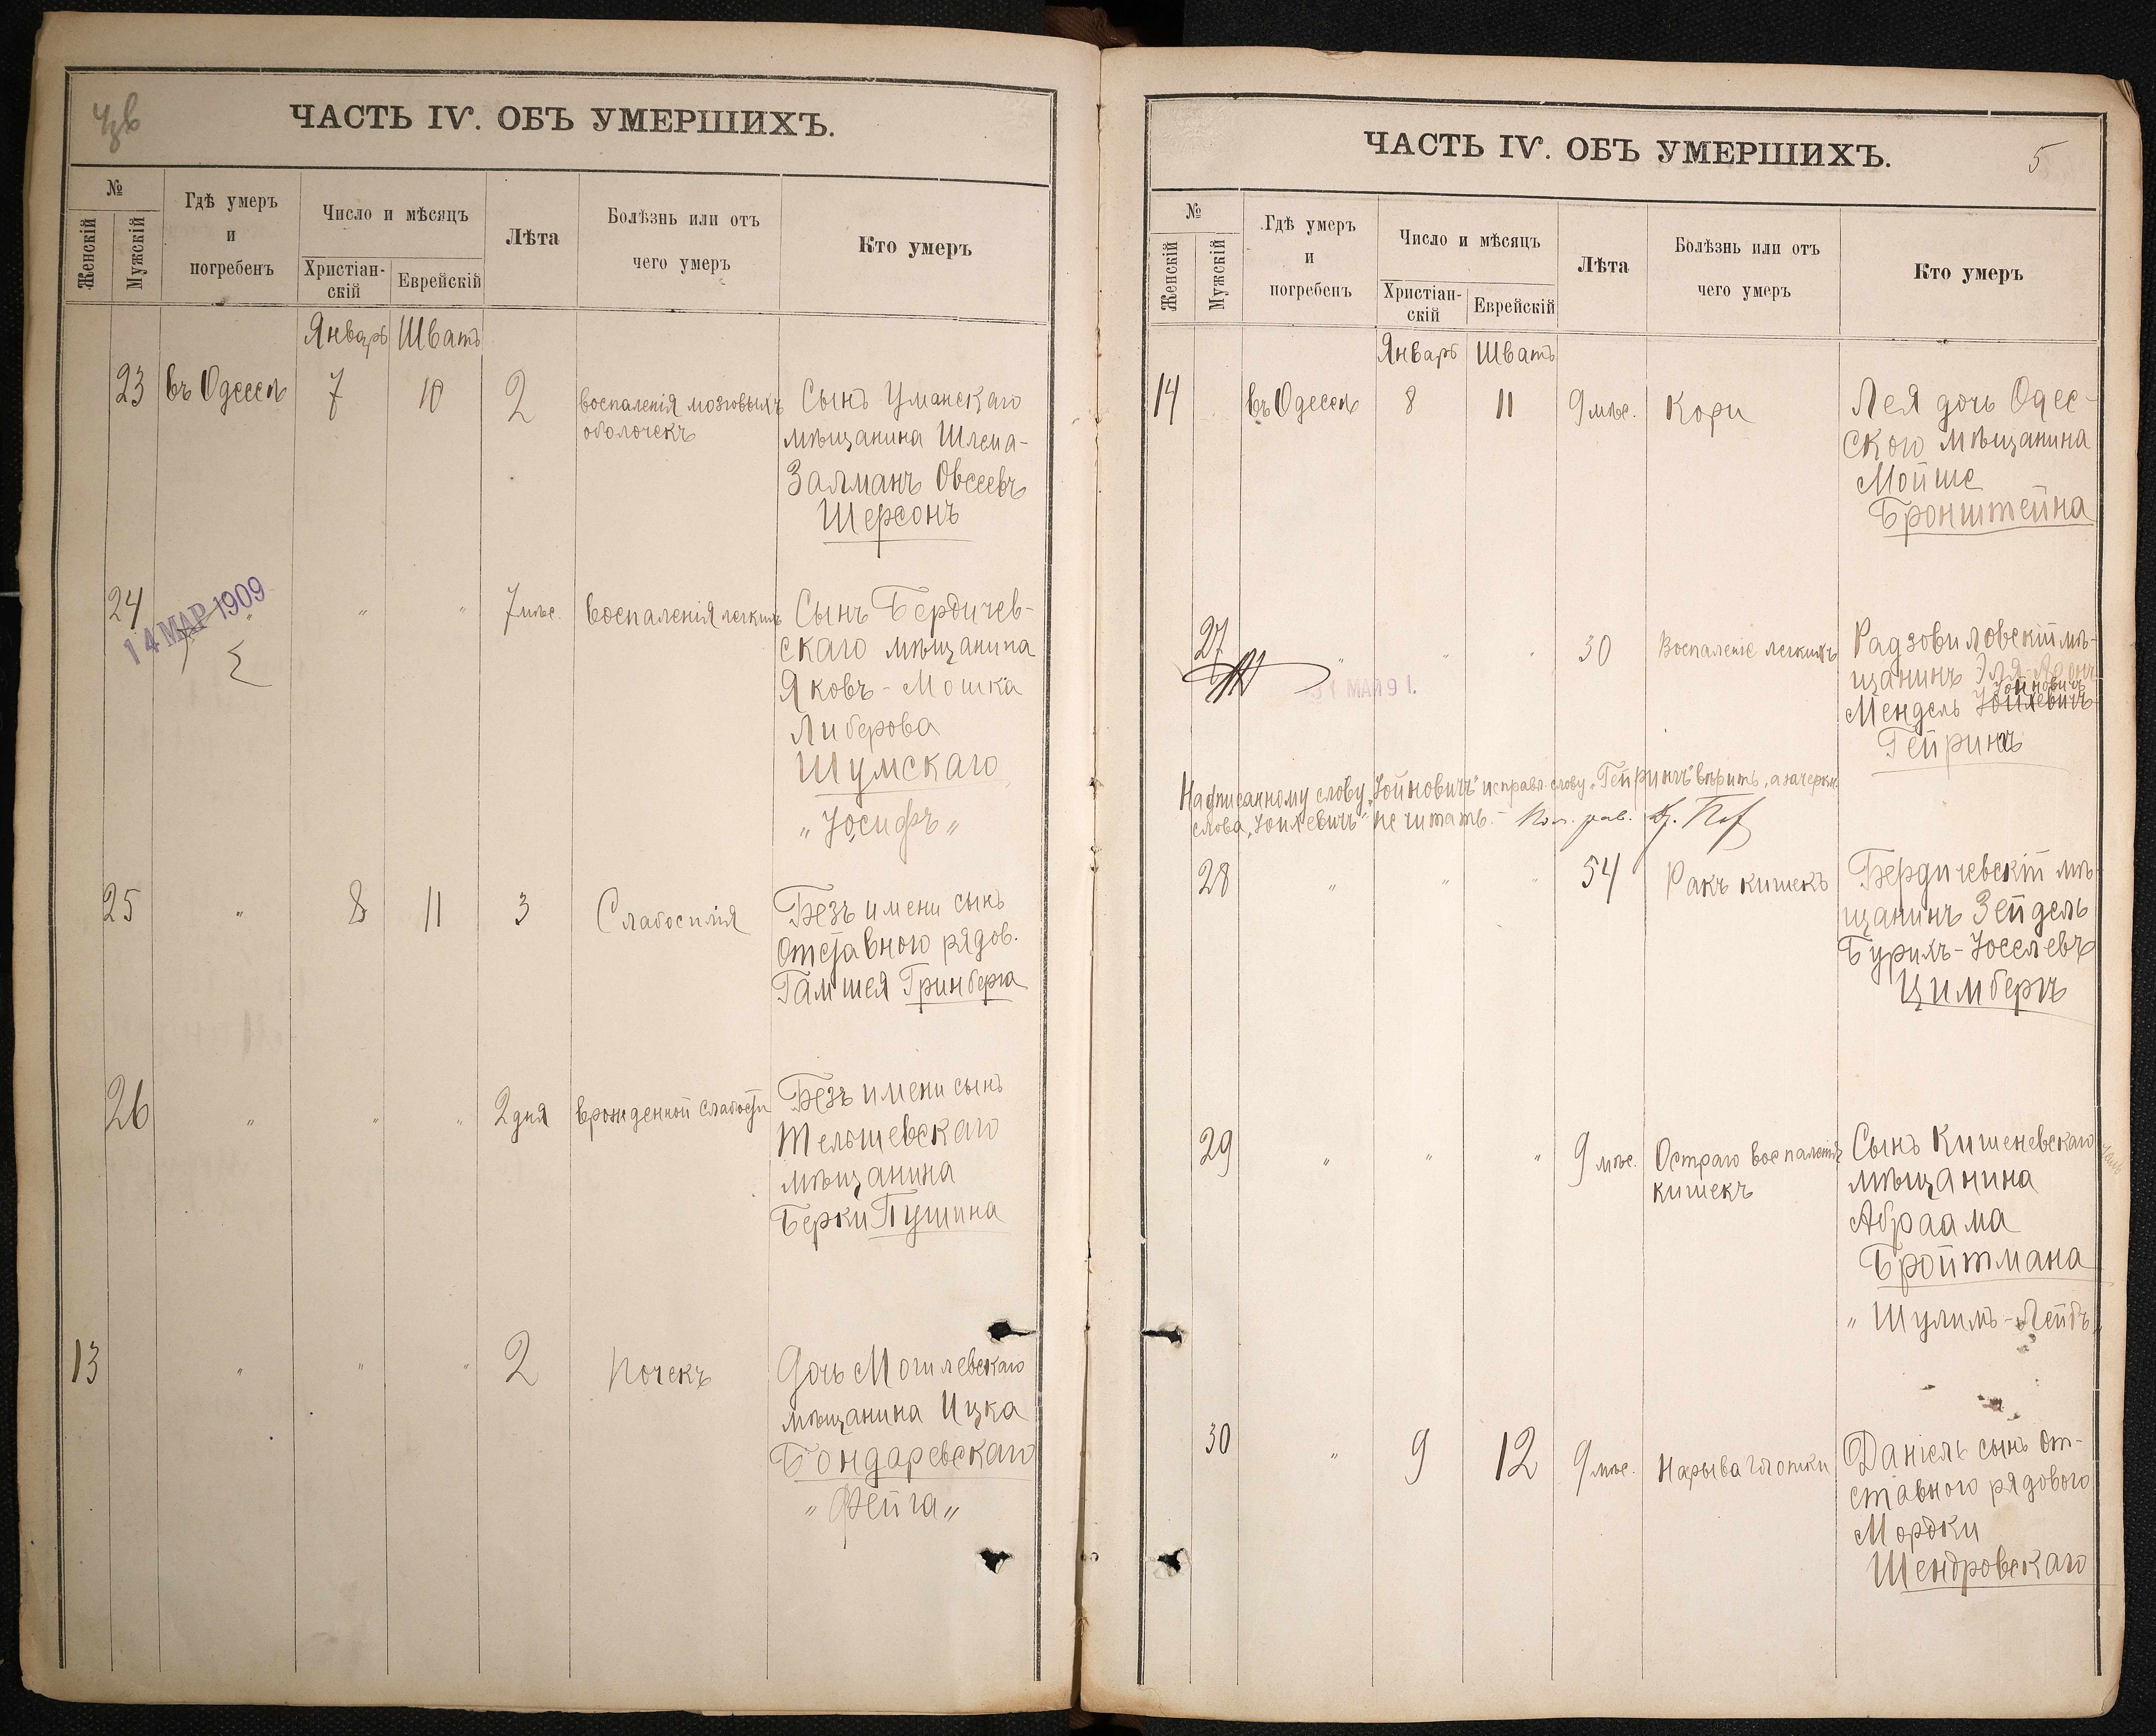 ЧАСТЬ IV. ОБЪ УМЕРШИХЪ.
№
Женскій
Мужскій
Гдѣ умеръ
и
погребенъ
Число и мѣсяцъ
Христіан-
скій
Еврейскій
Лѣта
Болѣзнь или отъ
чего умеръ
Кто умеръ
Январь Шватъ
23 въ Одессѣ 7 10 2 воспаленія мозговыхъ
оболочекъ
Сынъ Уманскаго
мѣщанина Шлема-
Залманъ Овсеевъ
Шерсонъ
24 " " " 7 мѣс. Воспаленія легкихъ
14 МАР 1909
Сынъ Бердичев-
скаго мѣщанина
Яковъ-Мошка
Либерова
Шумскаго
"Іосифъ"
25 " 8 11 3 Слабосилія
Безъ имени сынъ
отставного рядов.
Гамшея Гринберга
26 " " " 2 дня врожденной слабости
Безъ имени сынъ
Тельшевскаго
мѣщанина
Берки Пушина
13 " " " 2 Почекъ
Дочь Могилевскаго
мѣщанина Ицка
Бондаревскаго
"Фейга"
ЧАСТЬ IV. ОБЪ УМЕРШИХЪ.
5
№
Женскій
Мужскій
Гдѣ умеръ
и
погребенъ
Число и мѣсяцъ
Христіан-
скій
Еврейскій
Лѣта
Болѣзнь или отъ
чего умеръ
Кто умеръ
Январь Шватъ
14 въ Одессѣ 8 11 9 мѣс. Кори
Лея дочь Одес-
ского мѣщанина
Мойше
Бронштейна
27 " " " 30 Воспаленіе легкихъ
Радзовиловскій мѣ-
щанинъ Эля-Аронъ
Іойновичъ
Мендель Іойлевичъ
Гейрингъ
Надписанному слову "Іойновичъ" исправл. слову "Гейрингъ" вѣрить, а зачеркн.
слова "Іойлевичъ" не читать. –
28 " " " 54 Ракъ кишекъ
Бердичевскій мѣ-
щанинъ Зейдель
Бурихъ-Іоселевъ
Цимбергъ
29 " " " 9 мѣс. Остраго воспаленія
кишекъ
Сынъ Кишеневскаго
мѣщанина
Абраама
Бройтмана
"Шулимъ-Лейбъ"
30 " 9 12 9 мѣс. Нарыва глотки
Даніель сынъ от-
ставного рядового
Мордки
Шендровскаго